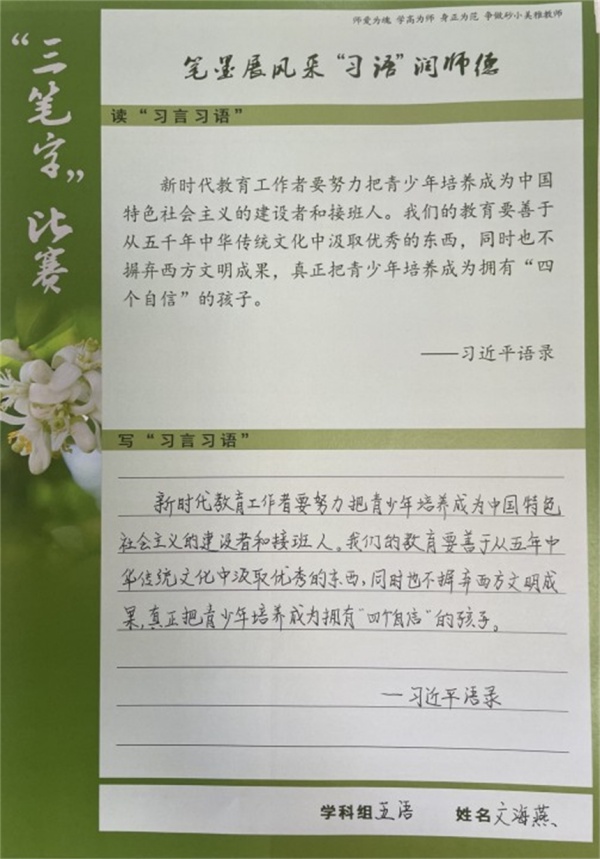 师爱为魂 学高为师 身正为范 争做砂小美雅教师
“三笔字”比赛
笔墨展风采“习语”润师德
读“习言习语”
新时代教育工作者要努力把青少年培养成为中国
特色社会主义的建设者和接班人。我们的教育要善于
从五千年中华传统文化中汲取优秀的东西，同时也不
摒弃西方文明成果，真正把青少年培养成为拥有“四
个自信”的孩子。
——习近平语录
写“习言习语”
新时代教育工作者要努力把青少年培养成为中国特色
社会主义的建设者和接班人。我们的教育要善于从五年中
华传统文化中汲取优秀的东西,同时也不摒弃西方文明成
果,真正把青少年培养成为拥有“四个自信”的孩子。
—习近平语录
学科组 五语 姓名 文海燕